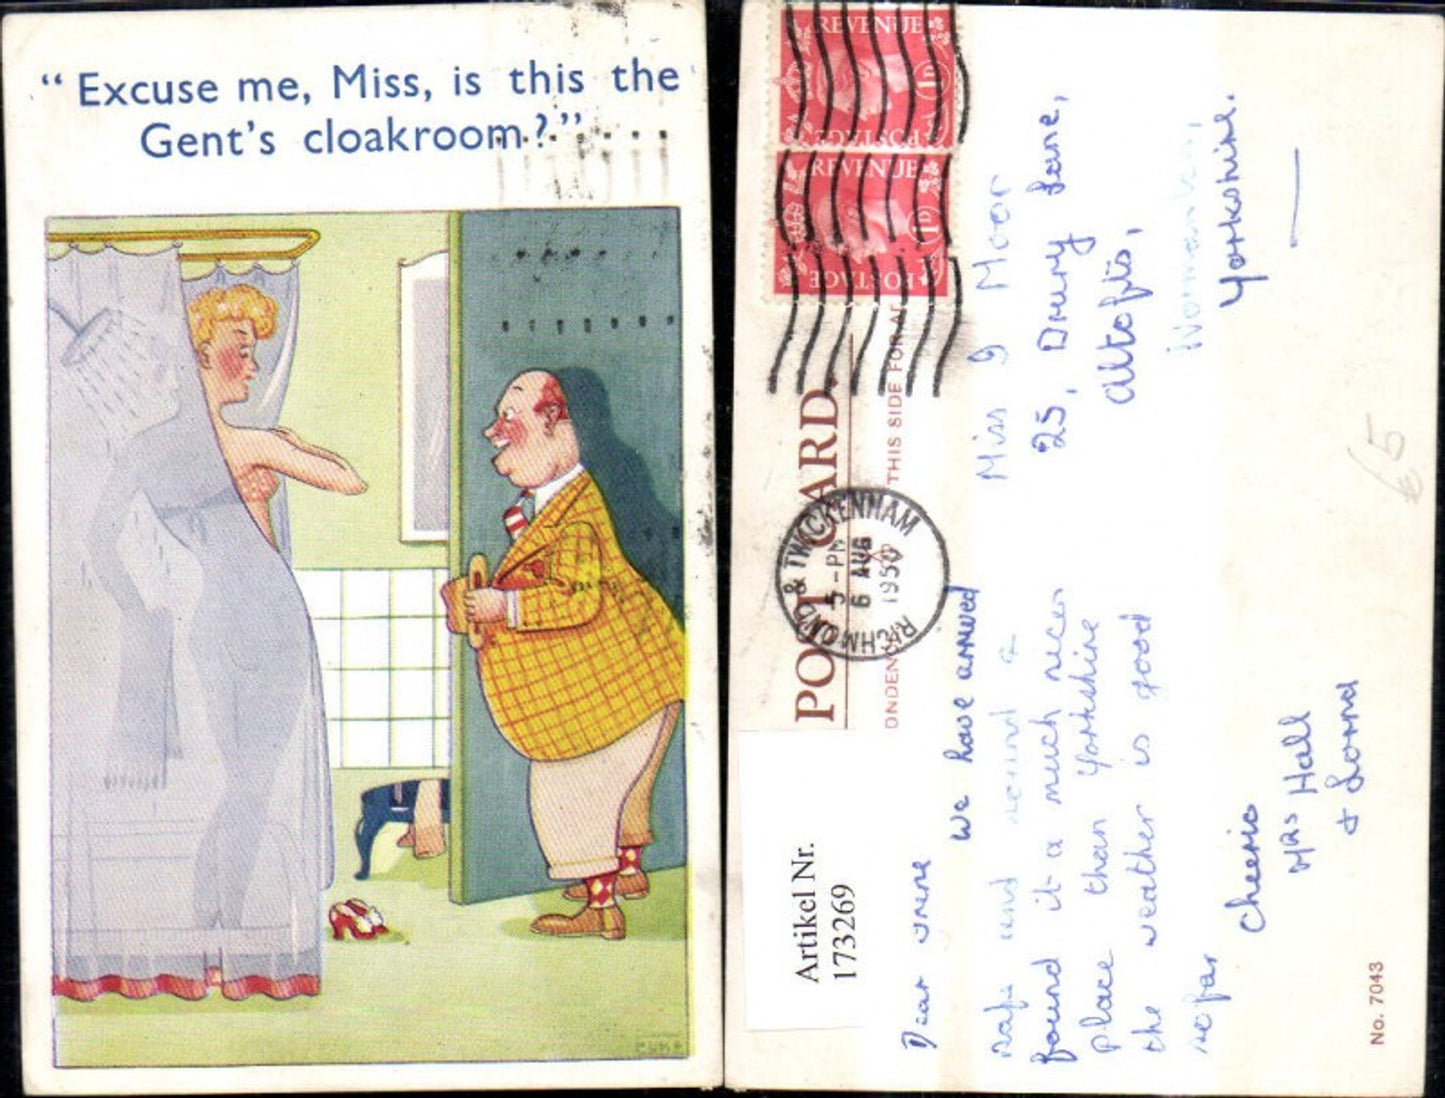 “Excuse me, Miss, is this the
Gent's cloakroom?”
REVENUE
POSTAGE
1D
REVENUE
POSTAGE
1D
POST CARD.
THIS SIDE FOR
ONDEN
RICHMOND & TWICKENHAM
5-PM
6 AUG
1950
Artikel Nr.
173269
Dear Irene
We have arrived
safe and sound &
found it a much nicer
place than Yorkshire
the weather is good
so far
Cheerio
Mrs Hall
&
Miss I Moor
25, Drury Lane,
Altofts,
Normanton,
Yorkshire.
€5
No. 7043